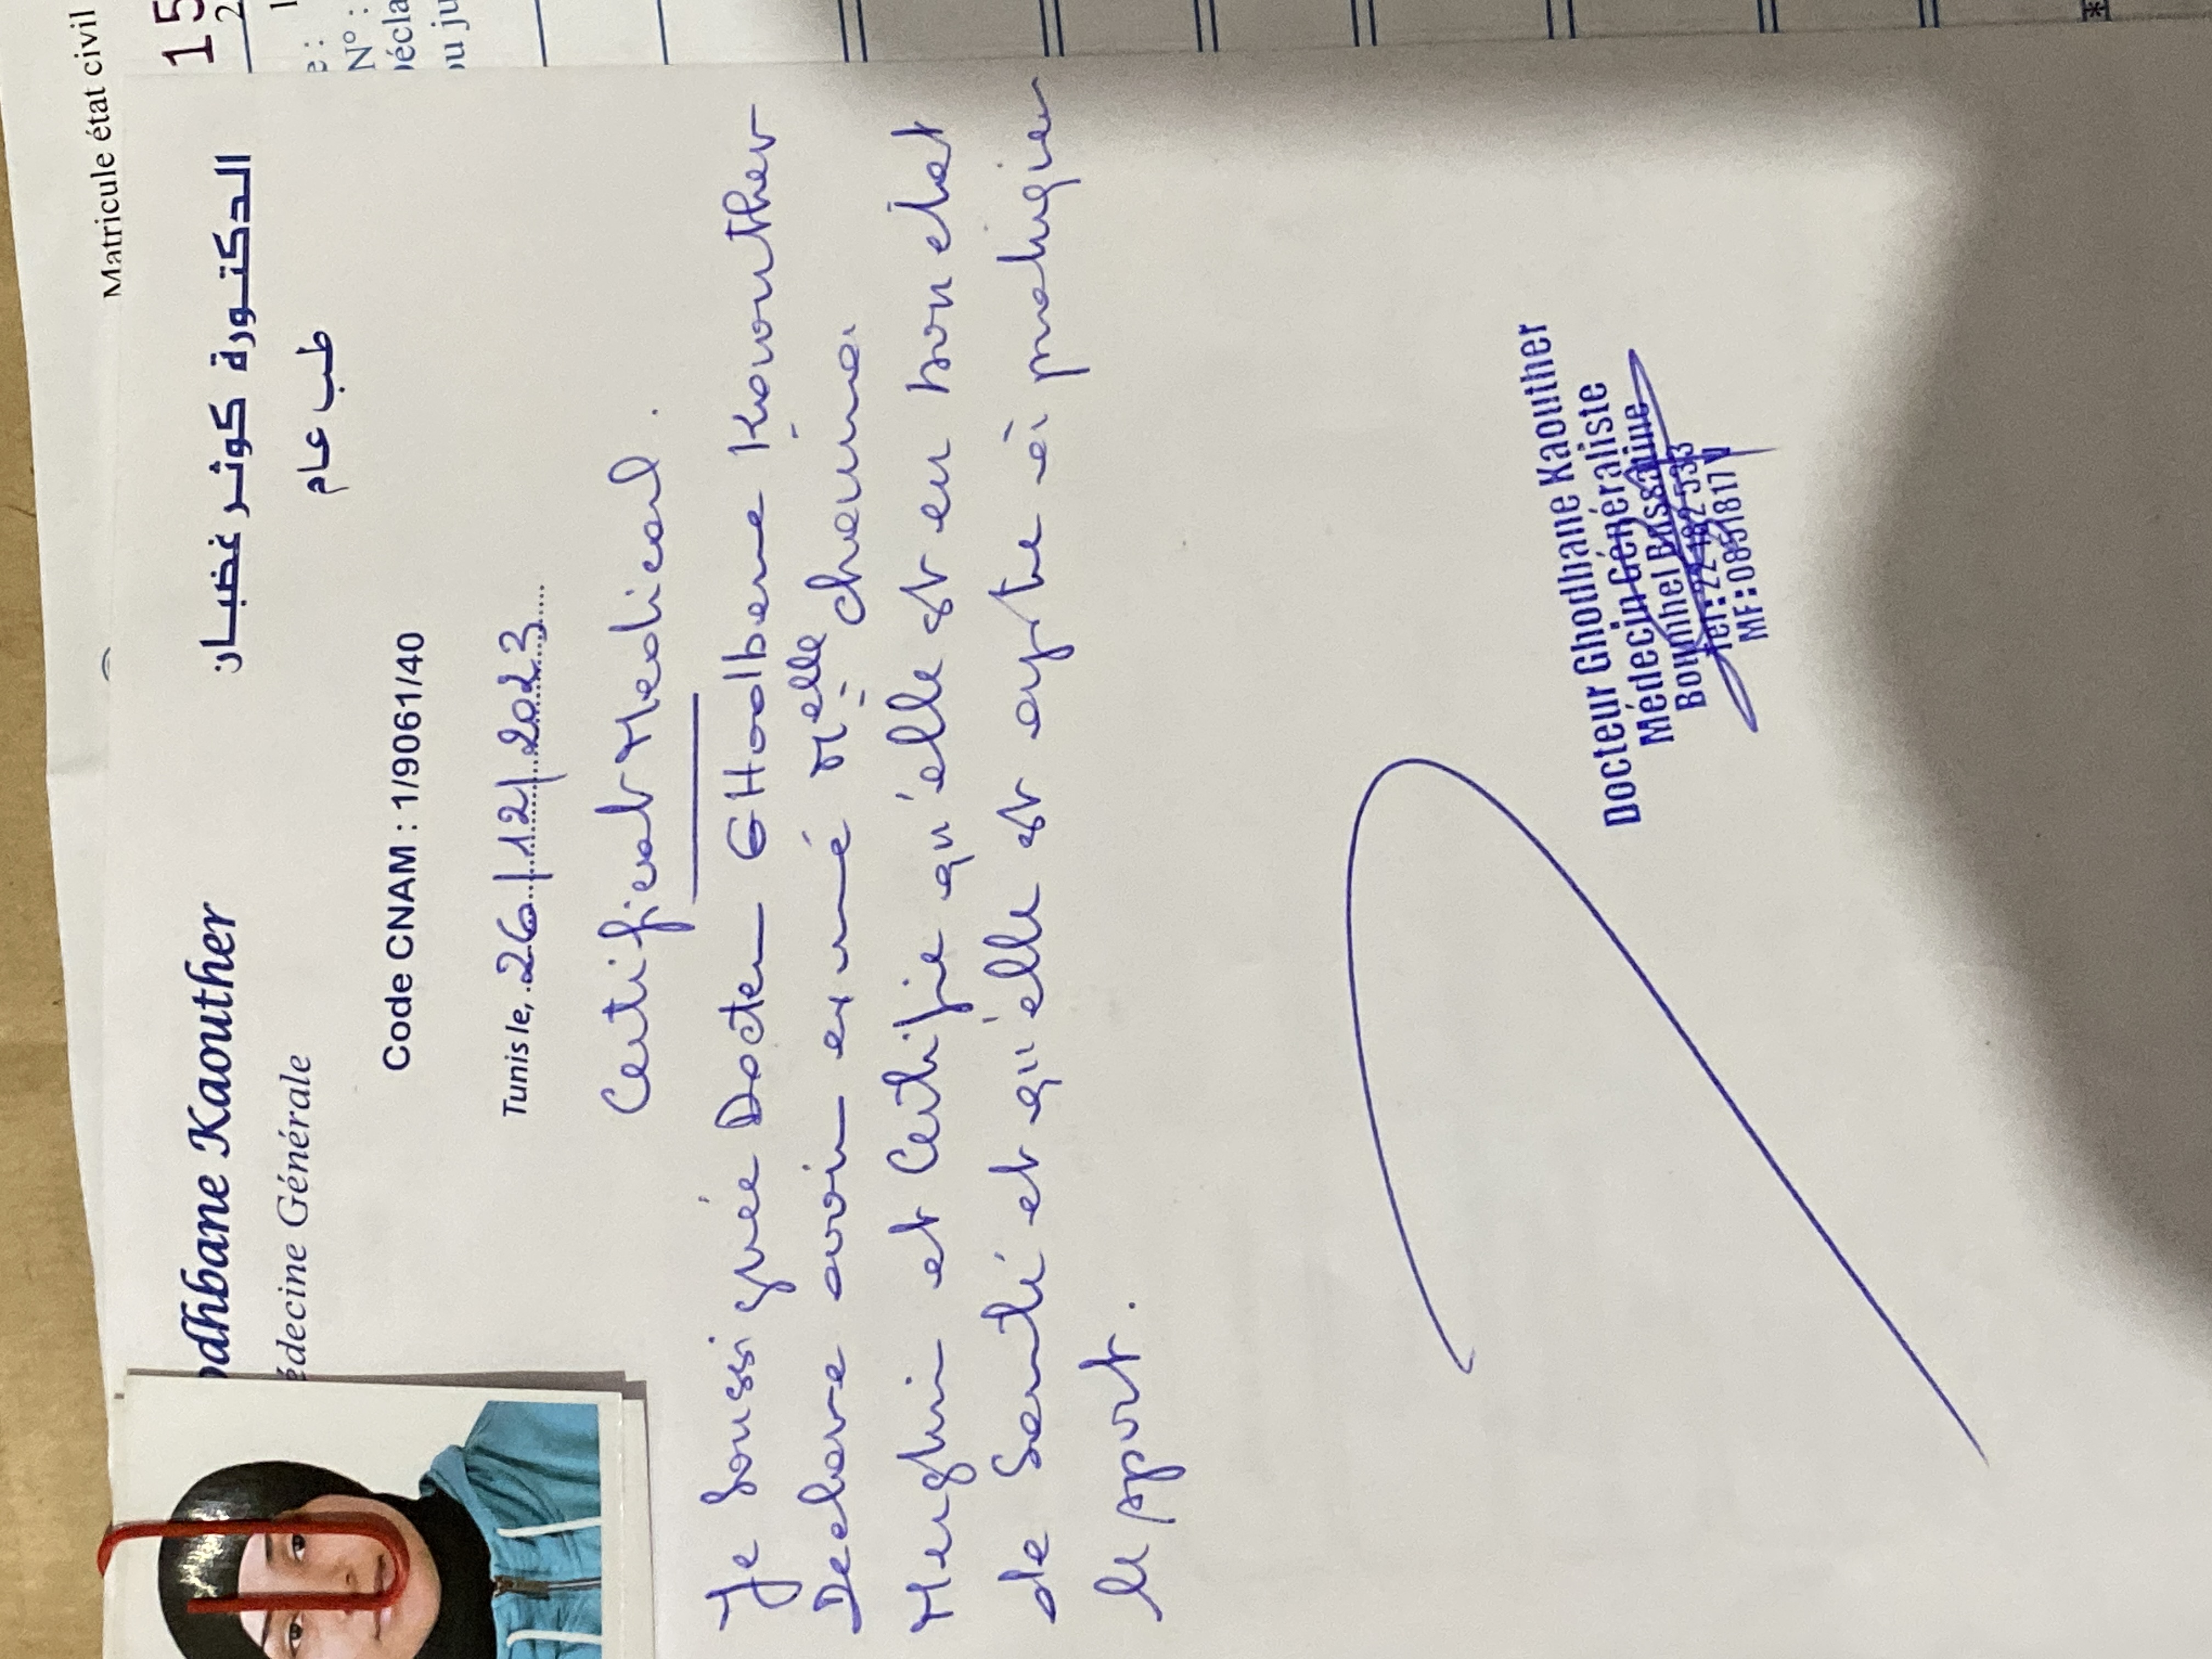 Matricule état civil
15
2
1
e :
N° :
écla
ou ju
odhbane Kaouther
الدكتورة كوثر غضبان
édecine Générale
طب عام
Code CNAM : 1/9061/40
Tunis le, 26/12/2023
Certificat Medical.
Je Soussignée Docteur GHodhbane Kaouther
Declare avoir examiné Melle chaima
et Certifie qu'elle est en bon état
de Santé et qu'elle est apte à pratiquer
le sport.
Docteur Ghodhbane Kaouther
Médecin Généraliste
Boumhel Bassatine
MF: